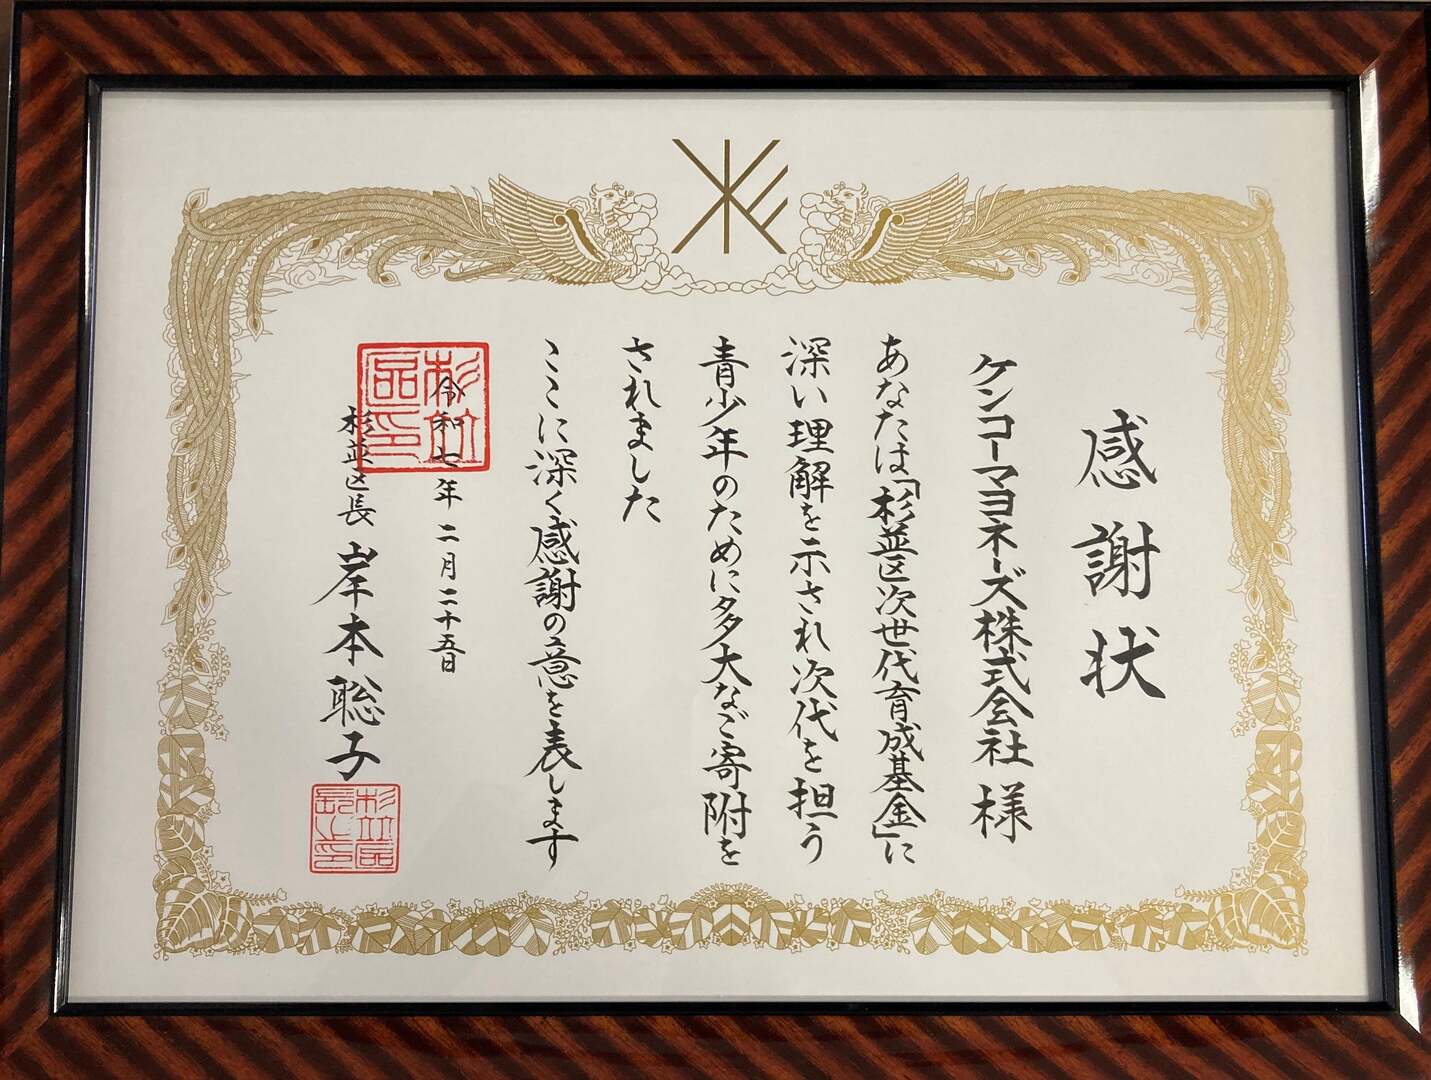 感謝状
ケンコーマヨネーズ株式会社 様
あなたは「杉並区次世代育成基金」に
深い理解を示され次代を担う
青少年のために多大なご寄附を
されました
ここに深く感謝の意を表します
令和七年 二月 二十五日
杉並区長 岸本聡子
杉並区印
杉並区長之印